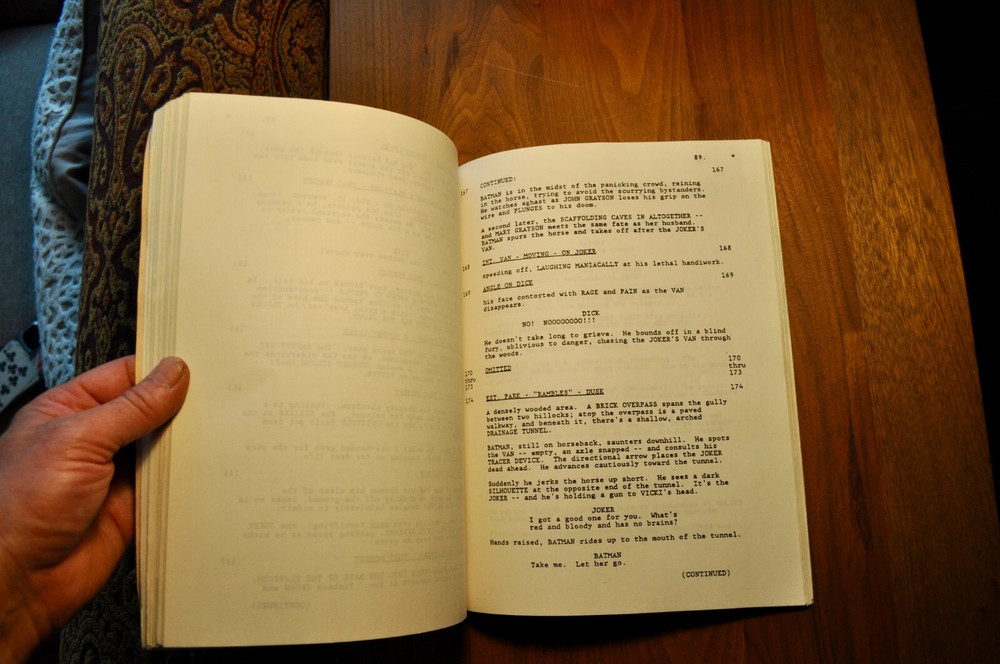 89. *
167 CONTINUED: 167
BATMAN is in the midst of the panicking crowd, reining
in the horse, trying to avoid the scurrying bystanders.
He watches aghast as JOHN GRAYSON loses his grip on the
wire and PLUNGES to his doom.
A second later, the SCAFFOLDING CAVES IN ALTOGETHER --
and MARY GRAYSON meets the same fate as her husband.
BATMAN spurs the horse and takes off after the JOKER'S
VAN.
168 INT. VAN - MOVING - ON JOKER 168
speeding off, LAUGHING MANIACALLY at his lethal handiwork.
169 ANGLE ON DICK 169
his face contorted with RAGE and PAIN as the VAN
disappears.
DICK
NO! NOOOOOOOO!!!
He doesn't take long to grieve. He bounds off in a blind
fury, oblivious to danger, chasing the JOKER'S VAN through
the woods.
170 OMITTED 170
thru thru
173 173
174 EXT. PARK - "RAMBLES" - DUSK 174
A densely wooded area. A BRICK OVERPASS spans the gully
between two hillocks; atop the overpass is a paved
walkway, and beneath it, there's a shallow, arched
DRAINAGE TUNNEL.
BATMAN, still on horseback, saunters downhill. He spots
the VAN -- empty, an axle snapped -- and consults his
TRACER DEVICE. The directional arrow places the JOKER
dead ahead. He advances cautiously toward the tunnel.
Suddenly he jerks the horse up short. He sees a dark
SILHOUETTE at the opposite end of the tunnel. It's the
JOKER -- and he's holding a gun to VICKI's head.
JOKER
I got a good one for you. What's
red and bloody and has no brains?
Hands raised, BATMAN rides up to the mouth of the tunnel.
BATMAN
Take me. Let her go.
(CONTINUED)